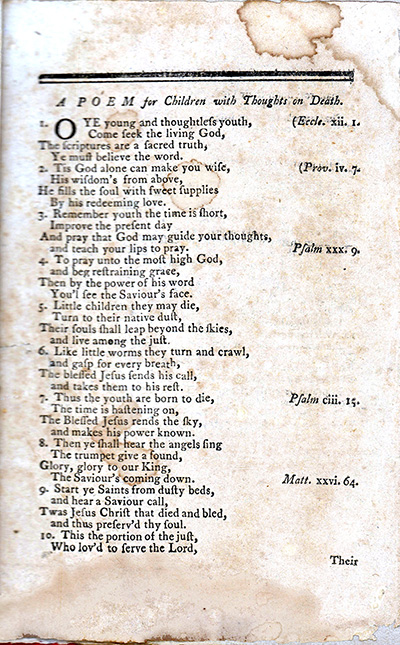 A POEM for Children with Thoughts on Death.
1. O YE young and thoughtleſs youth, (Eccle. xii. 1.
Come ſeek the living God,
The ſcriptures are a sacred truth,
Ye muſt believe the word.
2. Tis God alone can make you wiſe, (Prov. iv. 7.
His wiſdom's from above,
He fills the ſoul with ſweet ſupplies
By his redeeming love.
3. Remember youth the time is ſhort,
Improve the preſent day
And pray that God may guide your thoughts,
and teach your lips to pray. Pſalm xxx. 9.
4. To pray unto the moſt high God,
and beg reſtraining grace,
Then by the power of his word
You'l ſee the Saviour's face.
5. Little children they may die,
Turn to their native duſt,
Their ſouls ſhall leap beyond the ſkies,
and live among the juſt.
6. Like little worms they turn and crawl,
and gaſp for every breath,
The bleſſed Jeſus ſends his call,
and takes them to his reſt.
7. Thus the youth are born to die, Pſalm ciii. 15.
The time is haſtening on,
The Bleſſed Jeſus rends the ſky,
and makes his power known.
8. Then ye ſhall hear the angels ſing
The trumpet give a ſound,
Glory, glory to our King,
The Saviour's coming down. Matt. xxvi. 64.
9. Start ye Saints from duſty beds,
and hear a Saviour call,
Twas Jeſus Chriſt that died and bled,
and thus preſerv'd thy ſoul.
10. This the portion of the juſt,
Who lov'd to ſerve the Lord,
Their